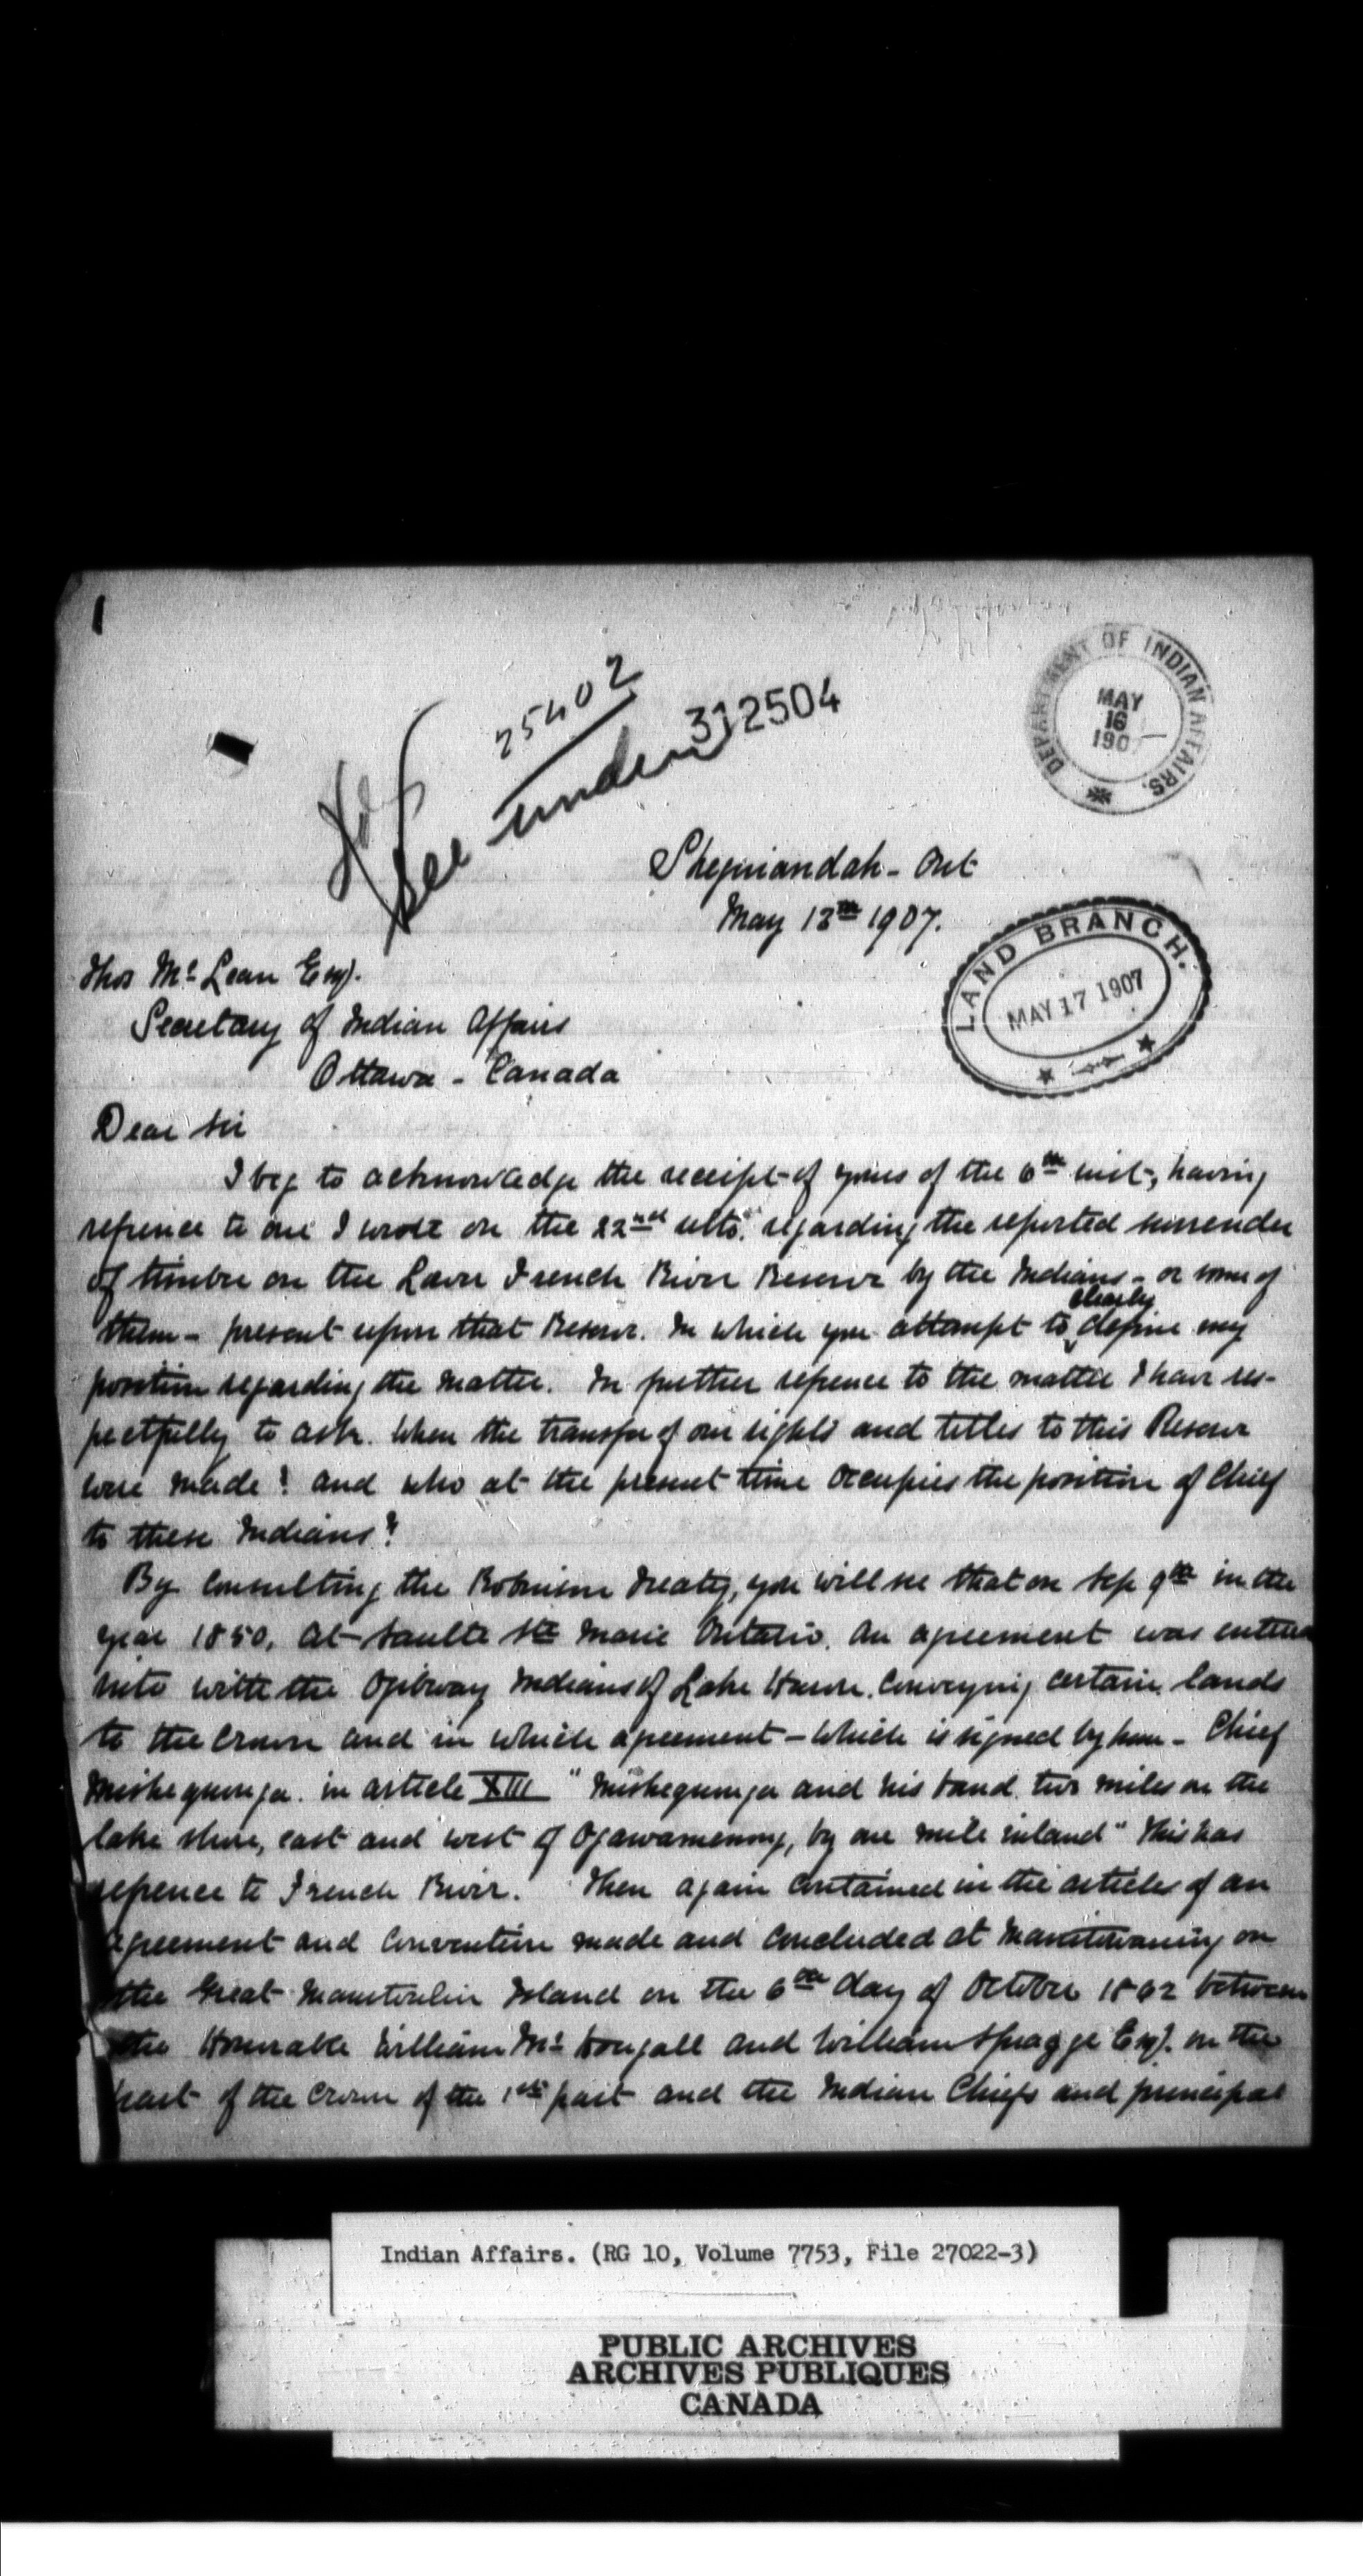 1
25402
312504
See under
DEPARTMENT OF INDIAN AFFAIRS.
MAY
16
1907
Shequiandah - Ont
May 13th 1907.
LAND BRANCH.
MAY 17 1907
Thos Mc Lean Esq.
Secretary of Indian Affairs
Ottawa - Canada
Dear Sir
I beg to acknowledge the receipt of yours of the 6th inst, having
refrence to one I wrote on the 22nd ulto. regarding the reported surrender
of timber on the Lower French River Reserve by the Indians - or some of
them - present upon that Reserve. In which you attempt to clearly define my
position regarding the matter. In further refrence to the matter I have res-
pectfully to ask. When the transfer of our rights and titles to this Reserve
were made? and who at the present time occupies the position of Chief
to these Indians?
By consulting the Robinson Treaty, you will see that on Sep 9th in the
year 1850, at Saulte Ste Marie Ontario. An agreement was entered
into with the Ojibway Indians of Lake Huron. Conveying certain lands
to the Crown and in which agreement - which is signed by him - Chief
Mishequonga. in article XIII "Mishequonga and his band two miles on the
lake shore, east and west of Ogawamenang, by one mile inland" This has
refrence to French River. Then again contained in the articles of an
agreement and Convention made and concluded at Manitowaning on
the Great Manitoulin Island on the 6th day of October 1862 between
the Honorable William Mc Dougall and William Spragge Esq. on the
part of the Crown of the 1st part and the Indian Chiefs and principal
Indian Affairs. (RG 10, Volume 7753, File 27022-3)
PUBLIC ARCHIVES
ARCHIVES PUBLIQUES
CANADA